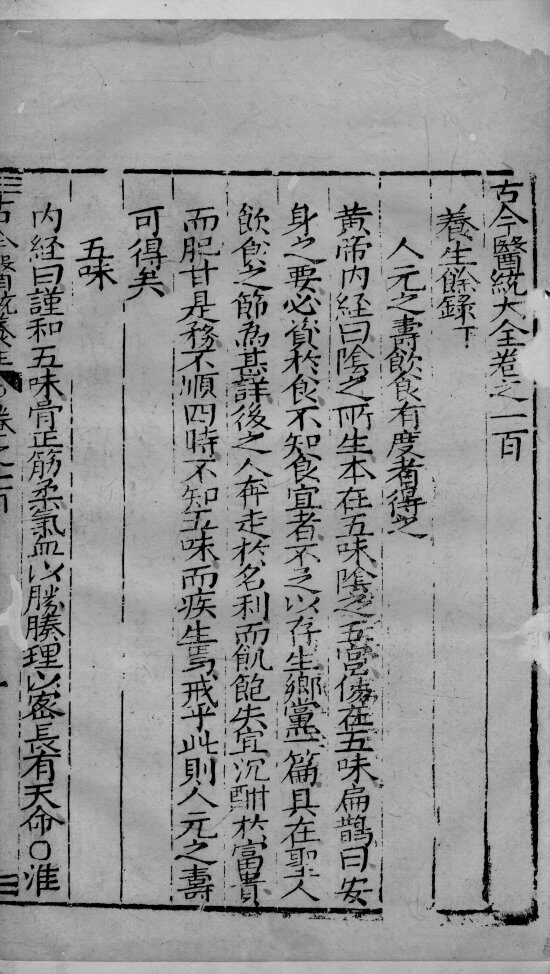 古今醫統大全卷之一百
養生餘錄下
人元之壽飲食有度者得之
黃帝内経曰陰之所生本在五味陰之五宮傷在五味扁鵲曰安
身之要必資於食不知食宜者不足以存生鄉黨一篇具在聖人
飲食之節為甚詳後之人奔走於名利而飢飽失宜沉酣於富貴
而肥甘是務不順四時不知五味而疾生焉戒乎此則人元之壽
可得矣
五味
内経曰謹和五味骨正筋柔氣血以勝腠理以密長有天命〇淮
古今醫統養生 卷之一百